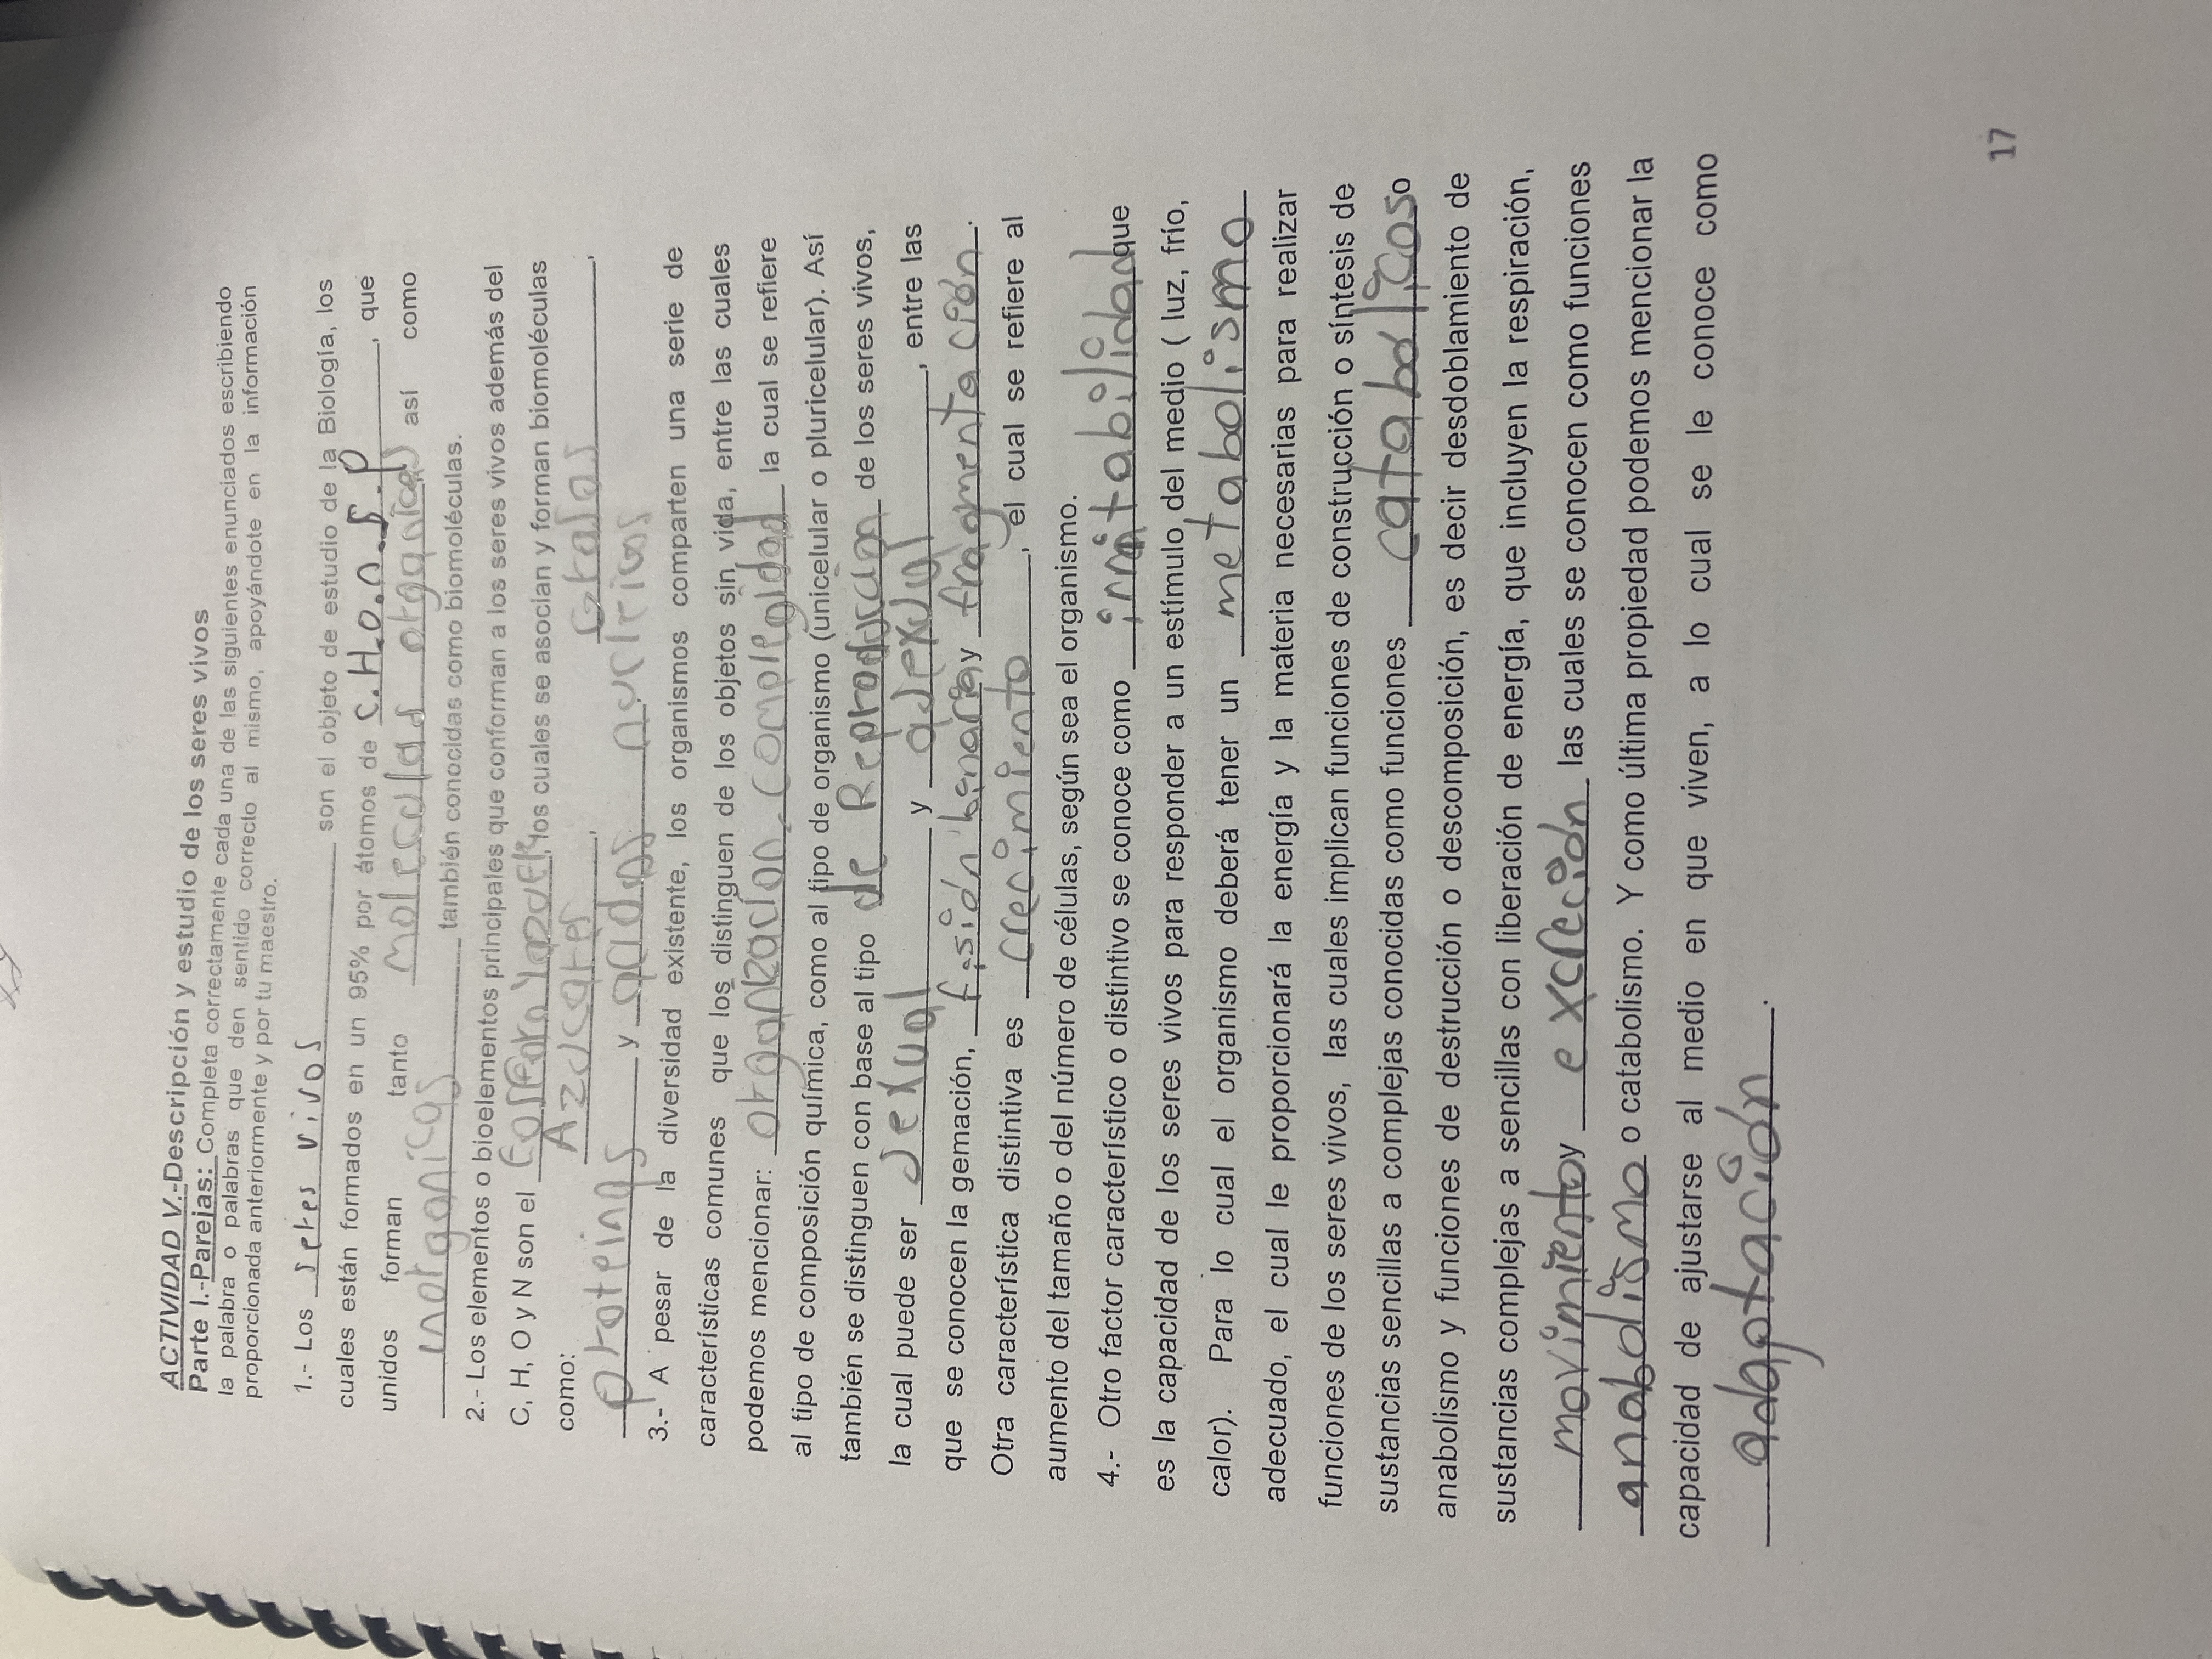 ACTIVIDAD V.-Descripción y estudio de los seres vivos
Parte I.-Parejas: Completa correctamente cada una de las siguientes enunciados escribiendo
la palabra o palabras que den sentido correcto al mismo, apoyándote en la información
proporcionada anteriormente y por tu maestro.
1.- Los seres vivos son el objeto de estudio de la Biología, los
cuales están formados en un 95% por átomos de C.H.O.n.S.P, que
unidos forman tanto moleculas organicas así como
inorganicas también conocidas como biomoléculas.
2.- Los elementos o bioelementos principales que conforman a los seres vivos además del
C, H, O y N son el fosforo y azufre, los cuales se asocian y forman biomoléculas
como: Azucares, Grasas,
proteinas y acidos nucleicos
3.- A pesar de la diversidad existente, los organismos comparten una serie de
características comunes que los distinguen de los objetos sin vida, entre las cuales
podemos mencionar: organizacion, complegidad la cual se refiere
al tipo de composición química, como al tipo de organismo (unicelular o pluricelular). Así
también se distinguen con base al tipo de Reproduccion de los seres vivos,
la cual puede ser sexual y asexual, entre las
que se conocen la gemación, fisión binaria y fragmentación.
Otra característica distintiva es crecimiento, el cual se refiere al
aumento del tamaño o del número de células, según sea el organismo.
4.- Otro factor característico o distintivo se conoce como irritabilidad que
es la capacidad de los seres vivos para responder a un estímulo del medio ( luz, frío,
calor). Para lo cual el organismo deberá tener un metabolismo
adecuado, el cual le proporcionará la energía y la materia necesarias para realizar
funciones de los seres vivos, las cuales implican funciones de construcción o síntesis de
sustancias sencillas a complejas conocidas como funciones catabolicas o
anabolismo y funciones de destrucción o descomposición, es decir desdoblamiento de
sustancias complejas a sencillas con liberación de energía, que incluyen la respiración,
movimiento y excreción las cuales se conocen como funciones
anabolismo o catabolismo. Y como última propiedad podemos mencionar la
capacidad de ajustarse al medio en que viven, a lo cual se le conoce como
adaptación.
17